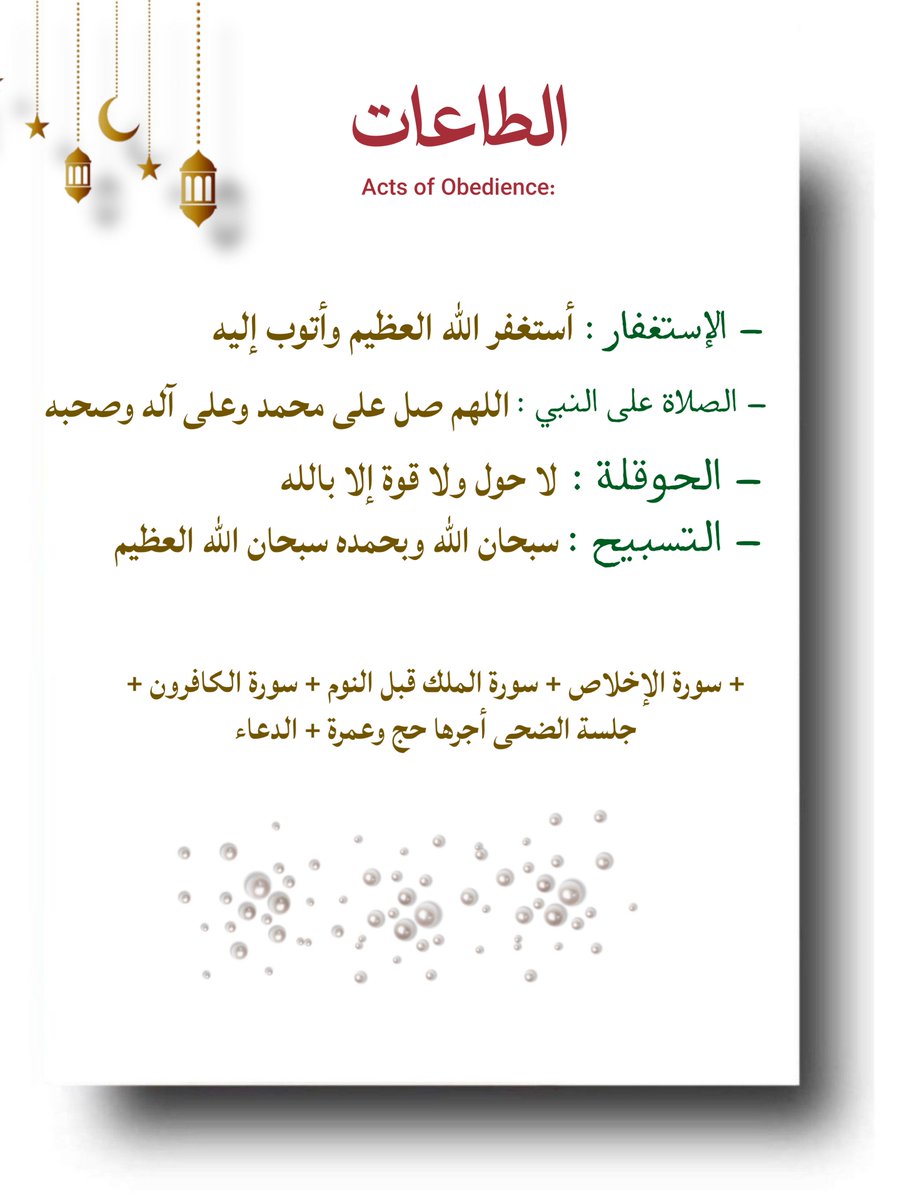 الطاعات
Acts of Obedience:
– الإستغفار : أستغفر الله العظيم وأتوب إليه
– الصلاة على النبي : اللهم صل على محمد وعلى آله وصحبه
– الحوقلة : لا حول ولا قوة إلا بالله
– التسبيح : سبحان الله وبحمده سبحان الله العظيم
+ سورة الإخلاص + سورة الملك قبل النوم + سورة الكافرون +
جلسة الضحى أجرها حج وعمرة + الدعاء